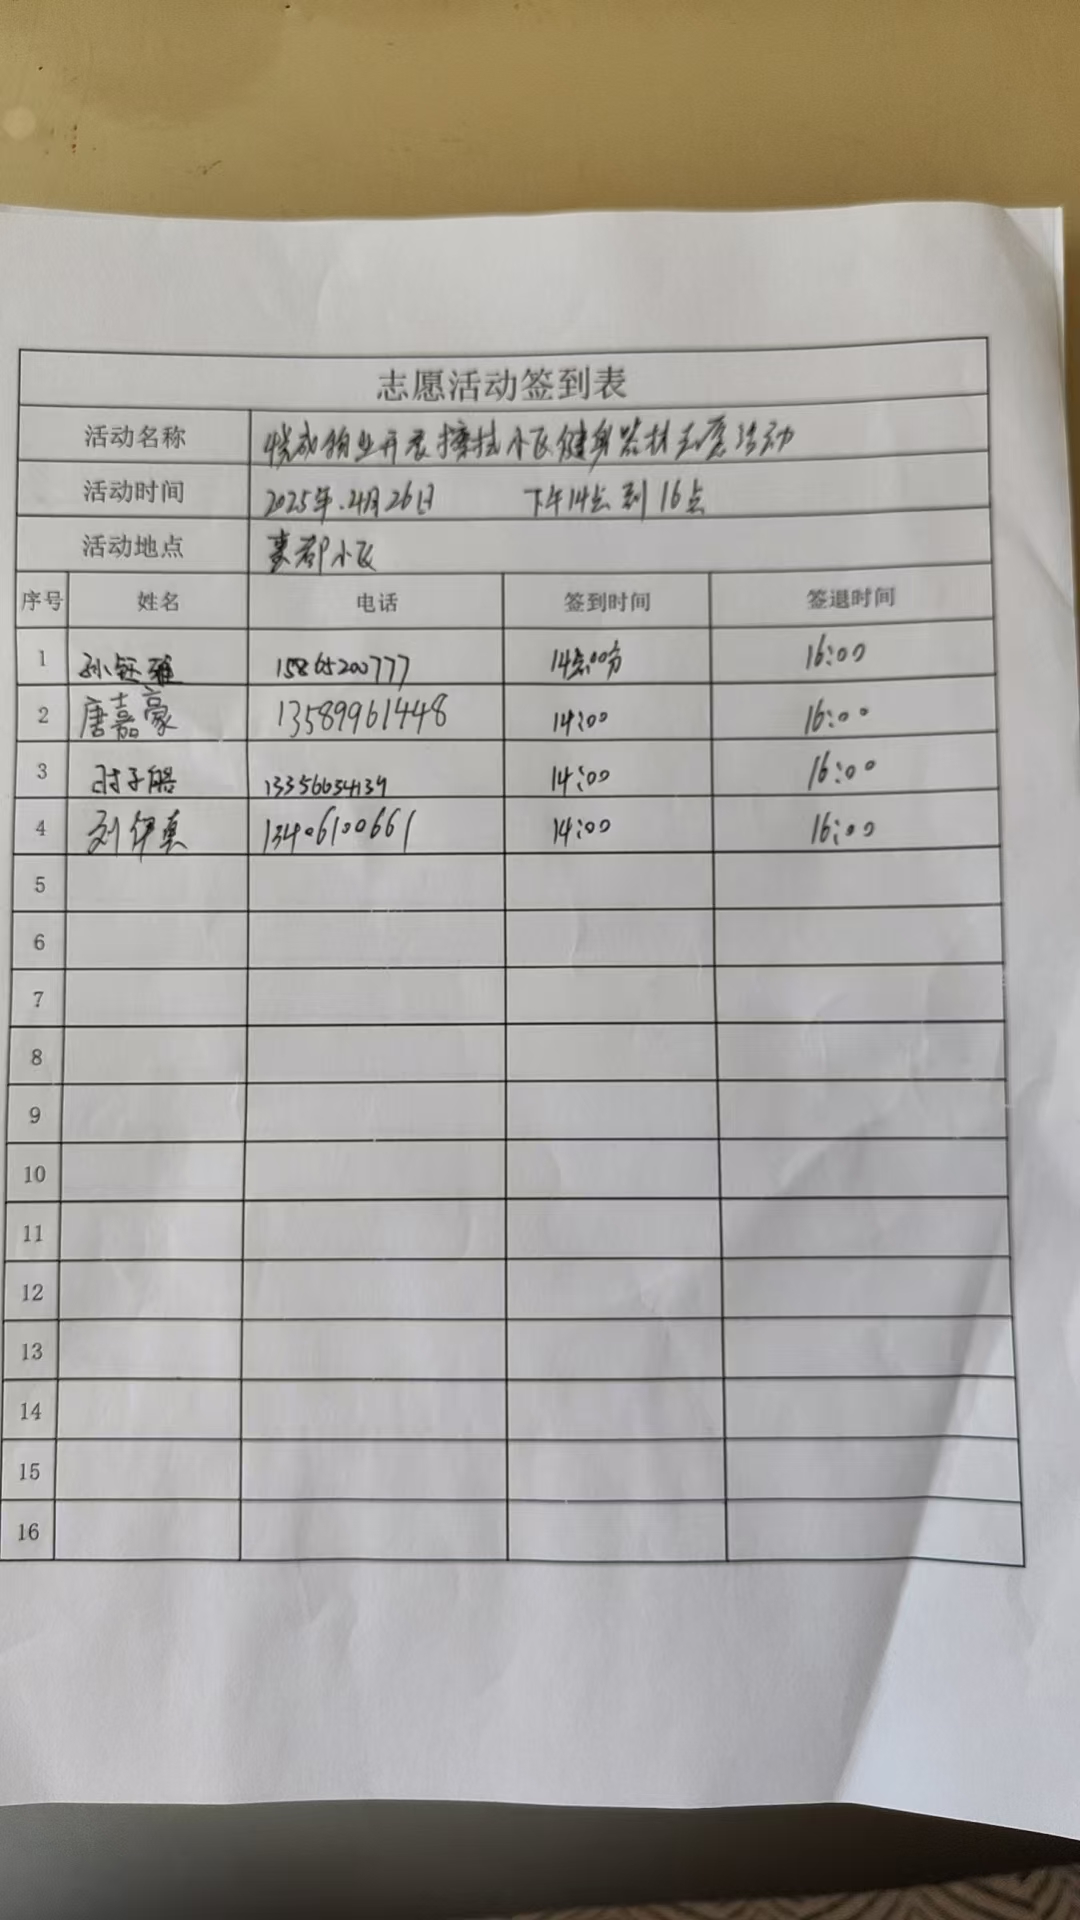 志愿活动签到表
活动名称 成物业开展擦拭小区健身器材志愿活动
活动时间 2025年.4月26日 下午14点到16点
活动地点 豪都小区
序号 姓名 电话 签到时间 签退时间
1 孙钰雅 15865200777 14点00分 16:00
2 唐嘉豪 13589961448 14:00 16:00
3 子皓 13356634139 14:00 16:00
4 刘伊真 13406100661 14:00 16:00
5
6
7
8
9
10
11
12
13
14
15
16